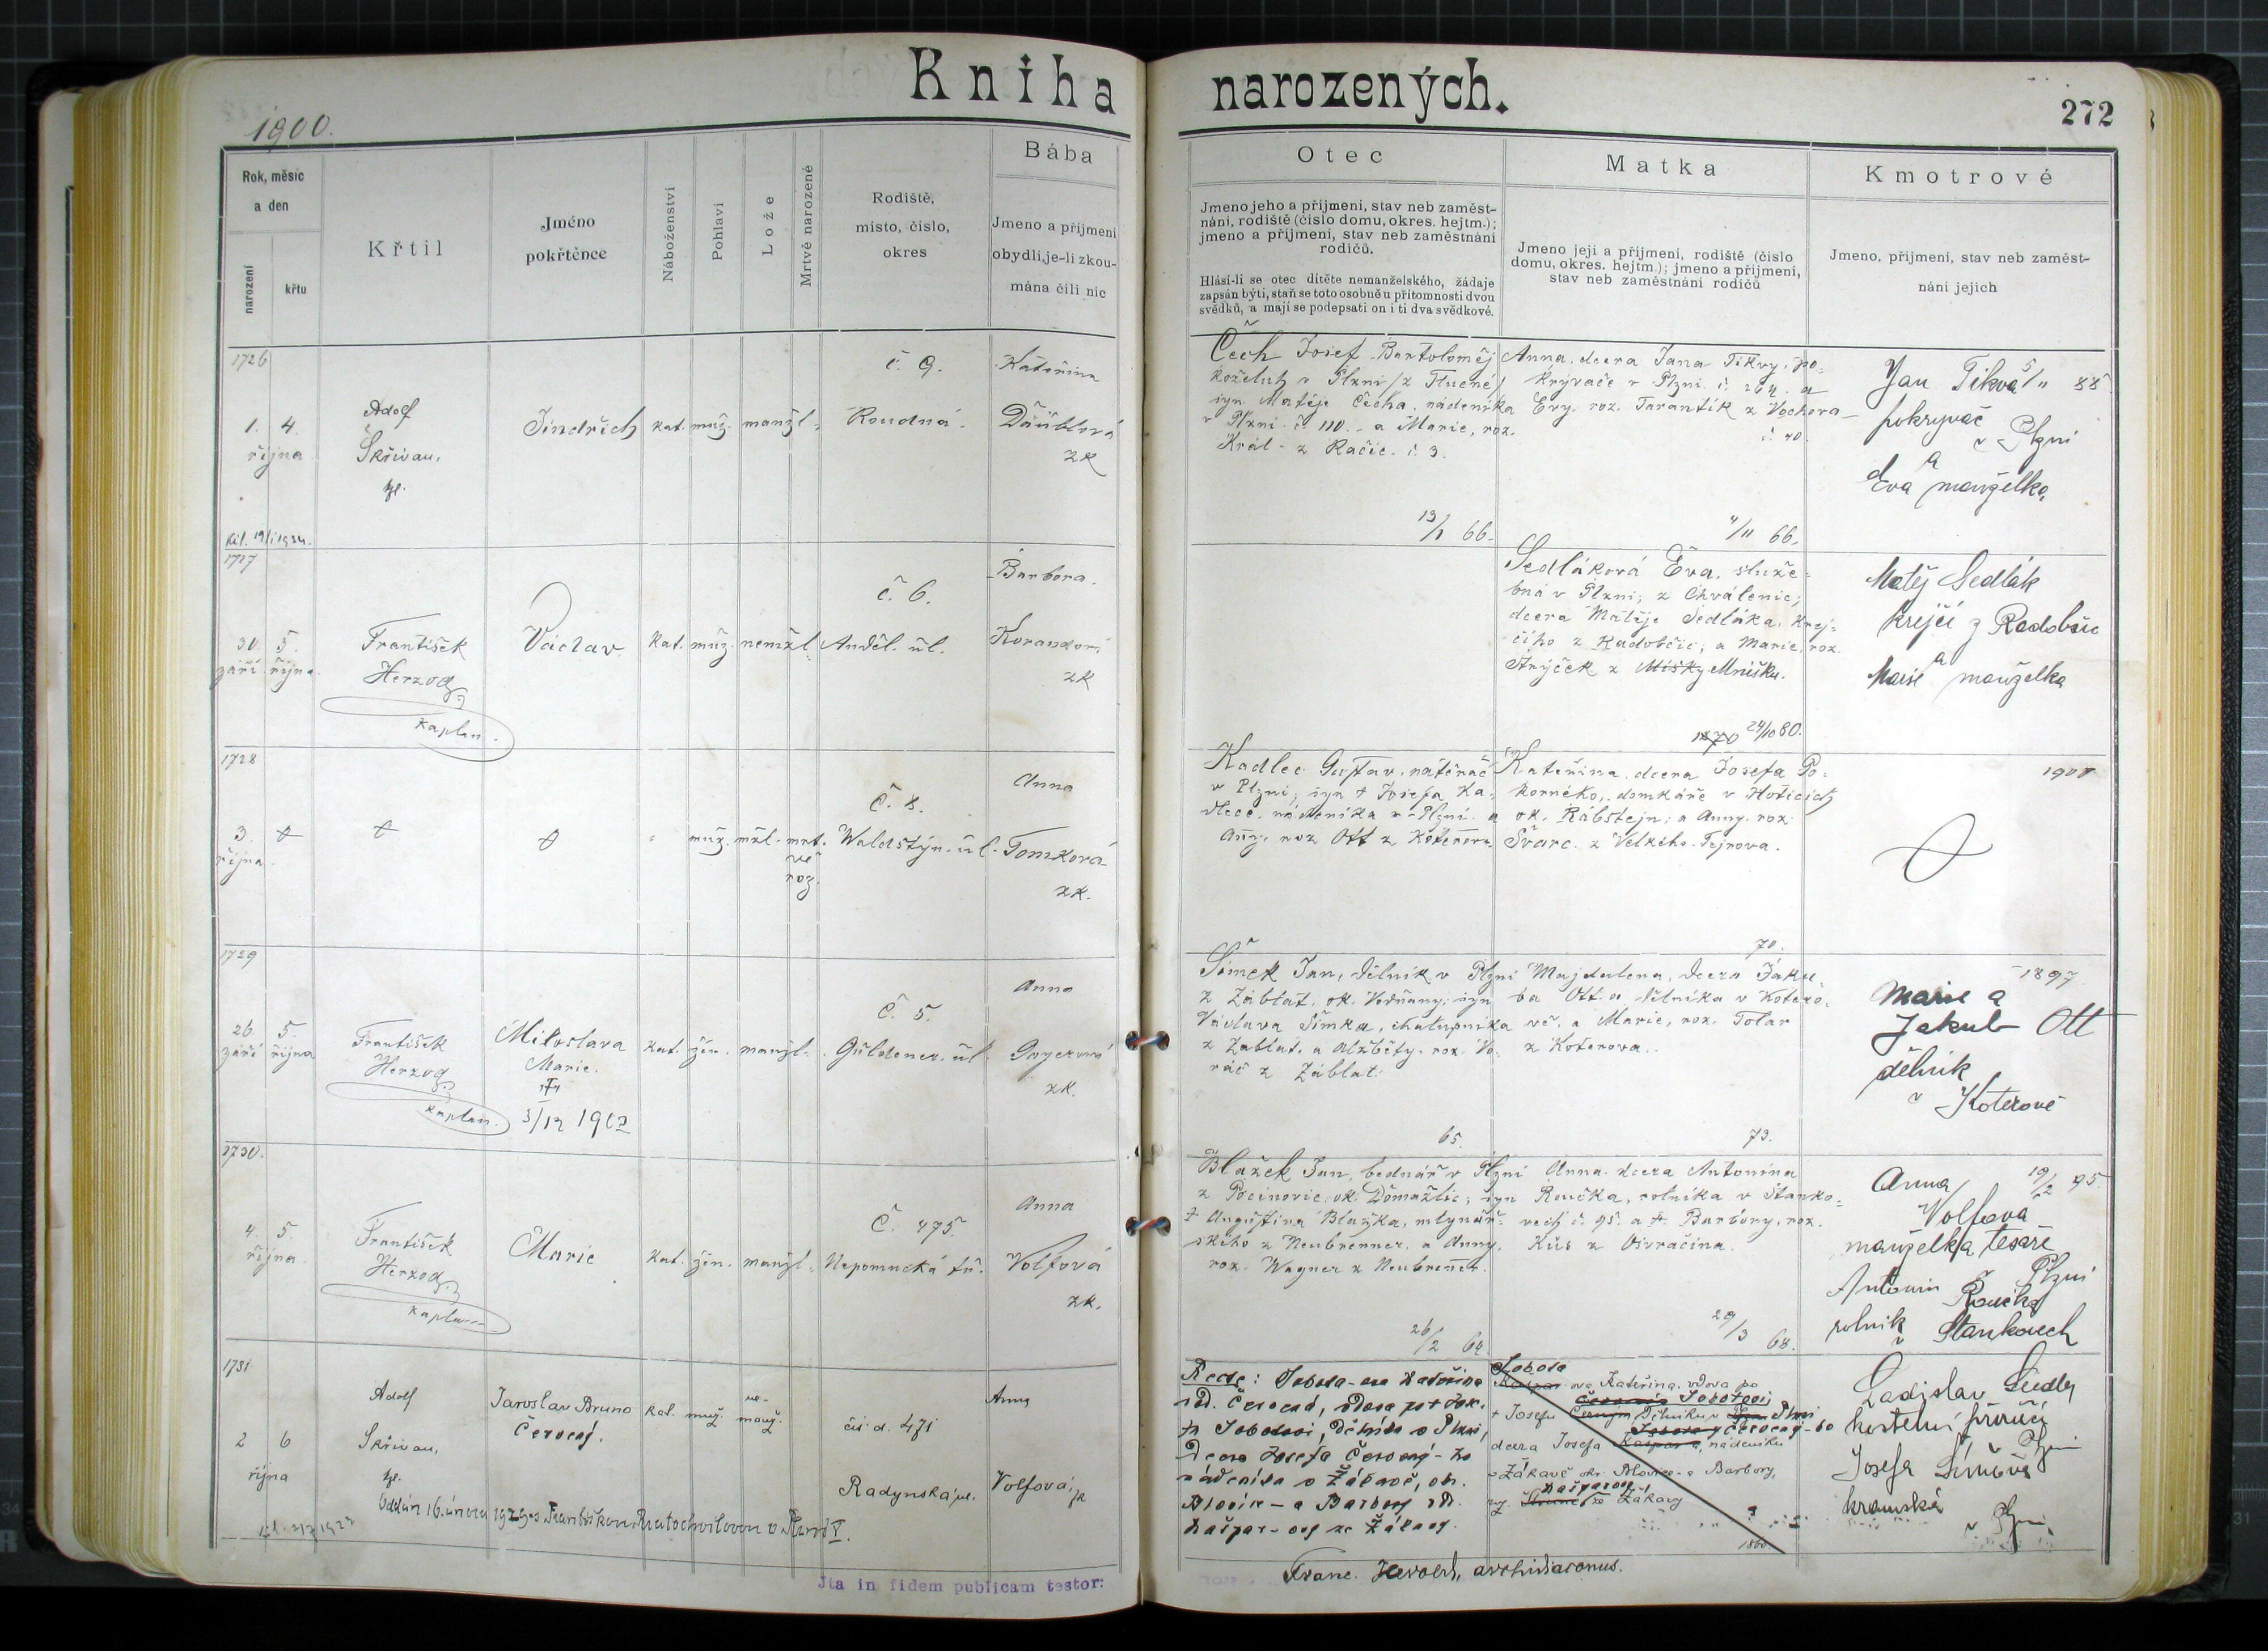 Kniha narozených.
1900.
272
Rok, měsíc
a den
narození
křtu
Křtil
Jméno
pokřtěnce
Náboženství
Pohlaví
Lože
Mrtvě narozené
Rodiště,
místo, číslo,
okres
Bába
Jmeno a příjmení
obydlí, je-li zkou-
mána čili nic
Otec
Jmeno jeho a příjmení, stav neb zaměst-
nání, rodiště (číslo domu, okres. hejtm.);
jmeno a příjmení, stav neb zaměstnání
rodičů.
Hlásí-li se otec dítěte nemanželského, žádaje
zapsán býti, staň se toto osobně u přítomnosti dvou
svědků, a mají se podepsati on i ti dva svědkové.
Matka
Jmeno její a příjmení, rodiště (číslo
domu, okres. hejtm.); jmeno a příjmení,
stav neb zaměstnání rodičů
Kmotrové
Jmeno, příjmení, stav neb zaměst-
nání jejich
1726
1. 4.
října
Adolf
Skřivan,
Jindřich
kat. muž. manžl.
č. 9.
Roudná.
Kateřina
Däüblová
zk
Čech Josef Bartoloměj
koželuh v Plzni /z Tlucné/
syn Matěje Čecha, nádeníka
v Plzni č. 110. a Marie, roz.
Král z Račic č. 3.
13/1 66.
Anna, dcera Jana Tikvy, po-
krývače v Plzni č. 264. a
Evy, roz. Tarantík z Vochova
č. 40.
4/11 66.
Jan Tikva 5/11 88
pokryvač
v Plzni
a
Eva manželka
1727
30. 5.
září října
František
Herzog
kaplan.
Václav
kat. muž. nemžl.
č. 6.
Anděl. ul.
Barbora
zk
Sedláková Eva, služe-
bná v Plzni, z Chválenic;
dcera Matěje Sedláka, krej-
čího z Radobčic, a Marie, roz.
Strýček z Míšky Mníšku.
1870 24/10 80.
Matěj Sedlák
krejčí z Radobčic
a
Marie manželka
1728
3.
října
muž. mžl. mrt.
vě
roz.
Č. 8.
Waldštýn. ul.
Anna
Tomková
zk.
Kadlec Gustav, natěrač
v Plzni, syn † Josefa Ka-
dlece, nádeníka v Plzni a
Anny, roz. Ott z Koterova
Kateřina, dcera Josefa Po-
korného, domkáře v Hošicích
ok. Rábstejn; a Anny, roz.
Švarc z Velkého Fejrova.
70.
1729
26. 5.
září října
František
Herzog
kaplan.
Miloslava
Marie.
†
3/12 1902
kat. žen. manžl.
Č. 5.
Güldener. ul.
Anna
zk.
Šimek Jan, dělník v Plzni
z Záblat, ok. Vodňany; syn
Václava Šimka, chalupníka
z Záblat, a Alžběty, roz. Vo-
ráč z Záblat.
65.
Majdalena, dcera Jaku-
ba Otta, dělníka v Kotero-
vě, a Marie, roz. Tolar
z Koterova.
73.
1897
Marie a
Jakub Ott
dělník
v Koterově
1730.
4. 5.
října
František
Herzog
kaplan
Marie
kat. žen. manžl.
Č. 475.
Nepomucká tř.
Anna
Volfová
zk.
Blažek Jan, bednář v Plzni
z Pocinovic, ok. Domažlic; syn
† Augustina Blažka, mlynář-
ského z Neubrenner, a Anny,
roz. Wagner z Neubrenner.
26/2 64
Anna, dcera Antonína
Roučka, rolníka v Stanko-
vech č. 95. a † Barbory, roz.
Kůs z Osvračína.
29/3 68.
Anna 19/2 95
Volfová
manželka tesaře
v Plzni
Antonín Roučka
rolník
v Stankovech
1731
2 6
října
Adolf
Skřivan,
Jaroslav Bruno
Červený.
kat. muž. ne-
manž.
čís. d. 471
Radynská ul.
Anna
Volfová, zk
Oddán 16. února 1929 s Františkou Kratochvilovou v Plzni I.
Recte: Sobota-ova Kateřina
roz. Červená, vdova po † Jose-
fu Sobotovi, dělníku v Plzni,
dcera Josefa Červený-ho
nádeníka v Žákavě, okr.
Blovice - a Barbory roz.
Kašpar-ovy ze Žákavy.
Sobota
Kašpar-ova Kateřina, vdova po
† Josefu Sobotovi
dělníku v Plzni
Červený-ho
dcera Josefa Kašpara, nádeníka
v Žákavě okr. Blovice a Barbory,
Kašparovy
ze Žákavy
1860
Ladislav
kostelní
v Plzni
Josefa
kramářská
v Plzni
Jta in fidem publicam testor:
Franc. Herold, archidiaconus.